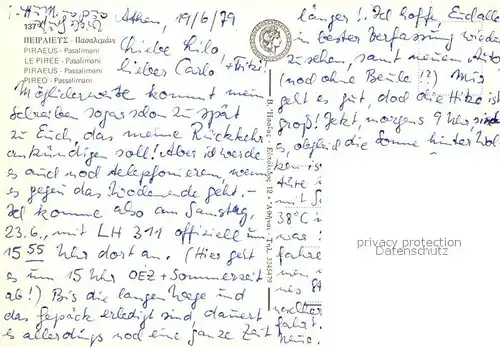 137
Athen, 19/6/79
ΠΕΙΡΑΙΕΥΣ - Πασαλιμάνι
PIRAEUS - Pasalimani
LE PIREE - Pasalimani
PIRAEUS - Pasalimani
PIREO - Pasalimani
Liebe Lilo,
lieber Carlo, + Fritzi!
Möglicherweise kommt mein
Schreiben sogar schon zu spät
zu Euch, das meine Rückkehr
ankündigen soll! Aber ich werde
es auch noch telephonieren, wenn
es gegen das Wochenende geht. -
Ich komme also am Samstag,
23.6., mit LH 311 offiziell um
15 55 Uhr dort an. (Hier geht
es um 15 Uhr OEZ + Sommerzeit
ab!) Bis die langen Wege und
das Gepäck erledigt sind, dauert
es allerdings noch eine ganze Zeit
länger! Ich hoffe, Euch alle
in bester Verfassung wieder
zu sehen, samt neuem Auto
(noch ohne Beule (!?) Mir
geht es gut, doch die Hitze ist
groß! Jetzt, morgens 9 Uhr, sind
es, obgleich die Sonne hinter Wol-
ken ist
mit S
38°C i
war!
fahre
nes St
fahrt.
neue.
privacy protection
Datenschutz